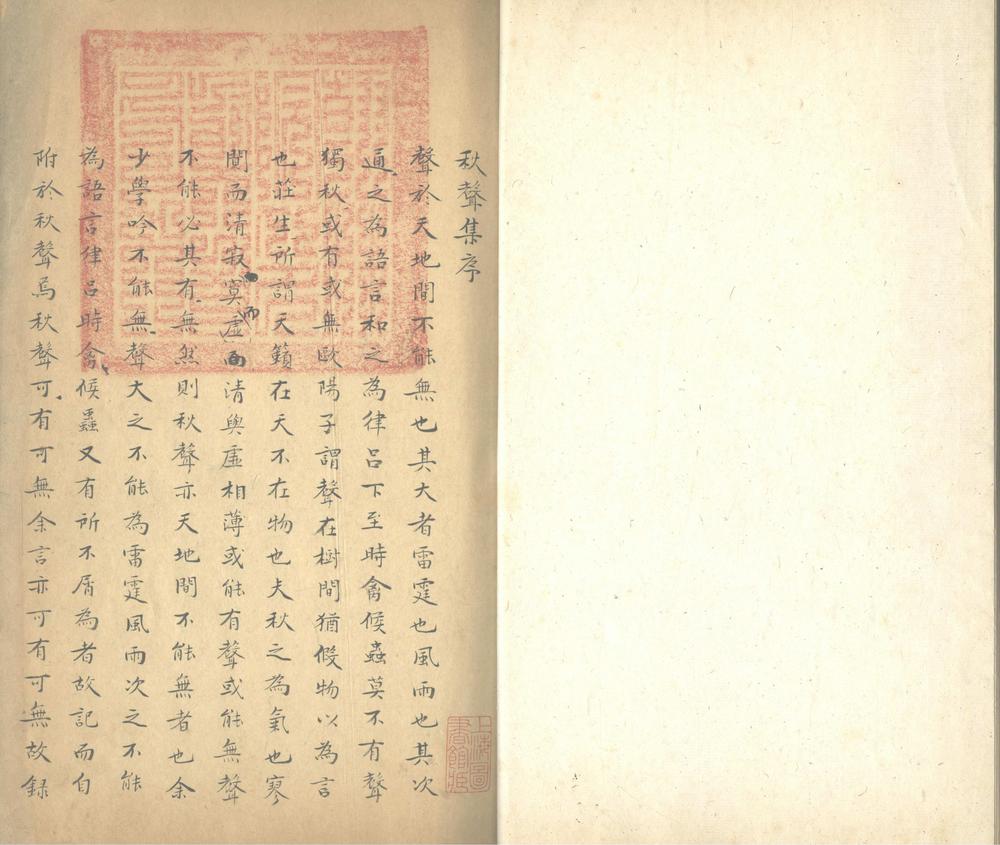 秋聲集序
聲於天地間不能無也其大者雷霆也風雨也其次
通之為語言和之為律呂下至時禽候蟲莫不有聲
獨秋或有或無歐陽子謂聲在樹間猶假物以為言
也莊生所謂天籟在天不在物也夫秋之為氣也寥
閴而清寂寞而虛清與虛相薄或能有聲或能無聲
不能必其有無然則秋聲亦天地間不能無者也余
少學吟不能無聲大之不能為雷霆風雨次之不能
為語言律呂時禽候蟲又有所不屑為者故記而自
附於秋聲焉秋聲可有可無余言亦可有可無故録
上海圖書館藏